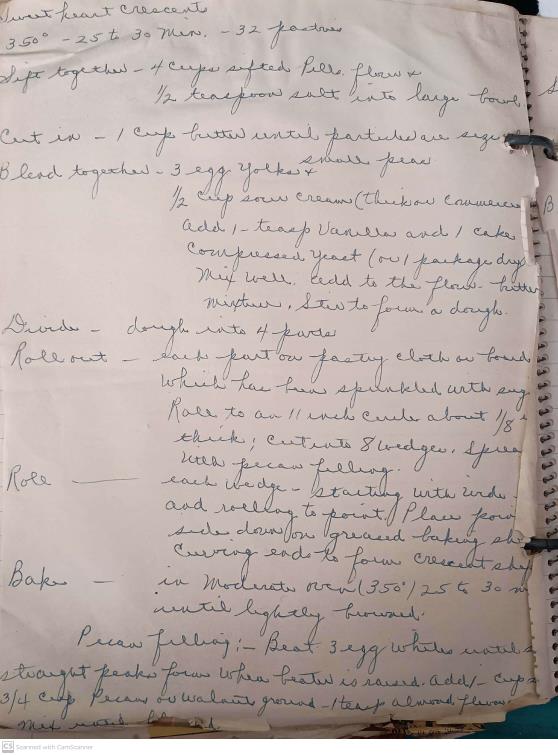 Sweetheart Crescents
350° - 25 to 30 Min. - 32 pastries
Sift together - 4 cups sifted Pills. flour &
1/2 teaspoon salt into large bowl
Cut in - 1 cup butter until particles are size
small peas
Blend together - 3 egg yolks &
1/2 cup sour cream (thick or commerc
add 1 - teasp Vanilla and 1 cake
Compressed yeast (or 1 package dry)
Mix well. add to the flour - butter
mixture. Stir to form a dough.
Divide - dough into 4 parts
Roll out - each part on pastry cloth or board
which has been sprinkled with sug
Roll to an 11 inch circle about 1/8
thick; cut into 8 wedges. Sprea
with pecan filling.
Roll - each wedge - starting with wide
and rolling to point. Place poin
side down on greased baking she
Curving ends to form crescent shap
Bake - in Moderate oven (350°) 25 to 30 m
until lightly browned.
Pecan filling: - Beat 3 egg whites until
straight peaks form when beater is raised. add 1 - cup
3/4 cup Pecans or walnuts ground - 1 teasp almond flavor
Mix until
B
CS Scanned with CamScanner